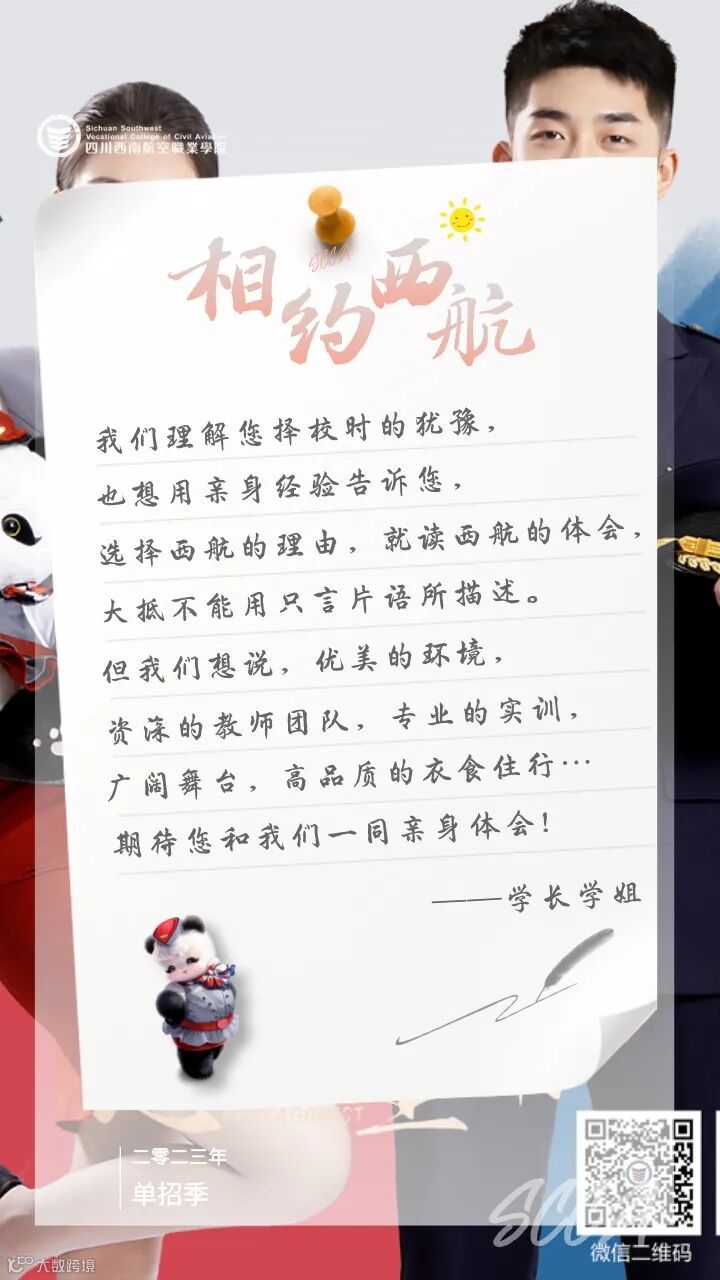 Sichuan Southwest
Vocational College of Civil Aviation
四川西南航空職業學院
SCCA
相约西航
我们理解您择校时的犹豫，
也想用亲身经验告诉您，
选择西航的理由，就读西航的体会，
大抵不能用只言片语所描述。
但我们想说，优美的环境，
资深的教师团队，专业的实训，
广阔舞台，高品质的衣食住行…
期待您和我们一同亲身体会！
——学长学姐
二零二三年
单招季
微信二维码
大数跨境